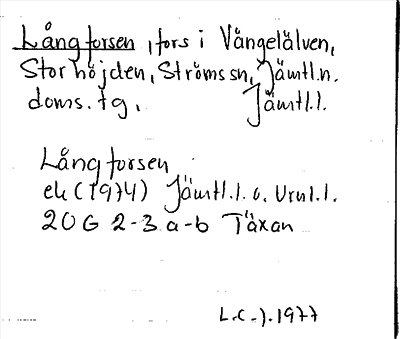 Långforsen, fors i Vängelälven,
Storhöjden, Ströms sn, Jämtl.n.
doms. tg, Jämtl.l.
Långforsen
ek (1974) Jämtl.l. o. Vrnl.l.
20 G 2-3 a-b Täxan
L.C-). 1977